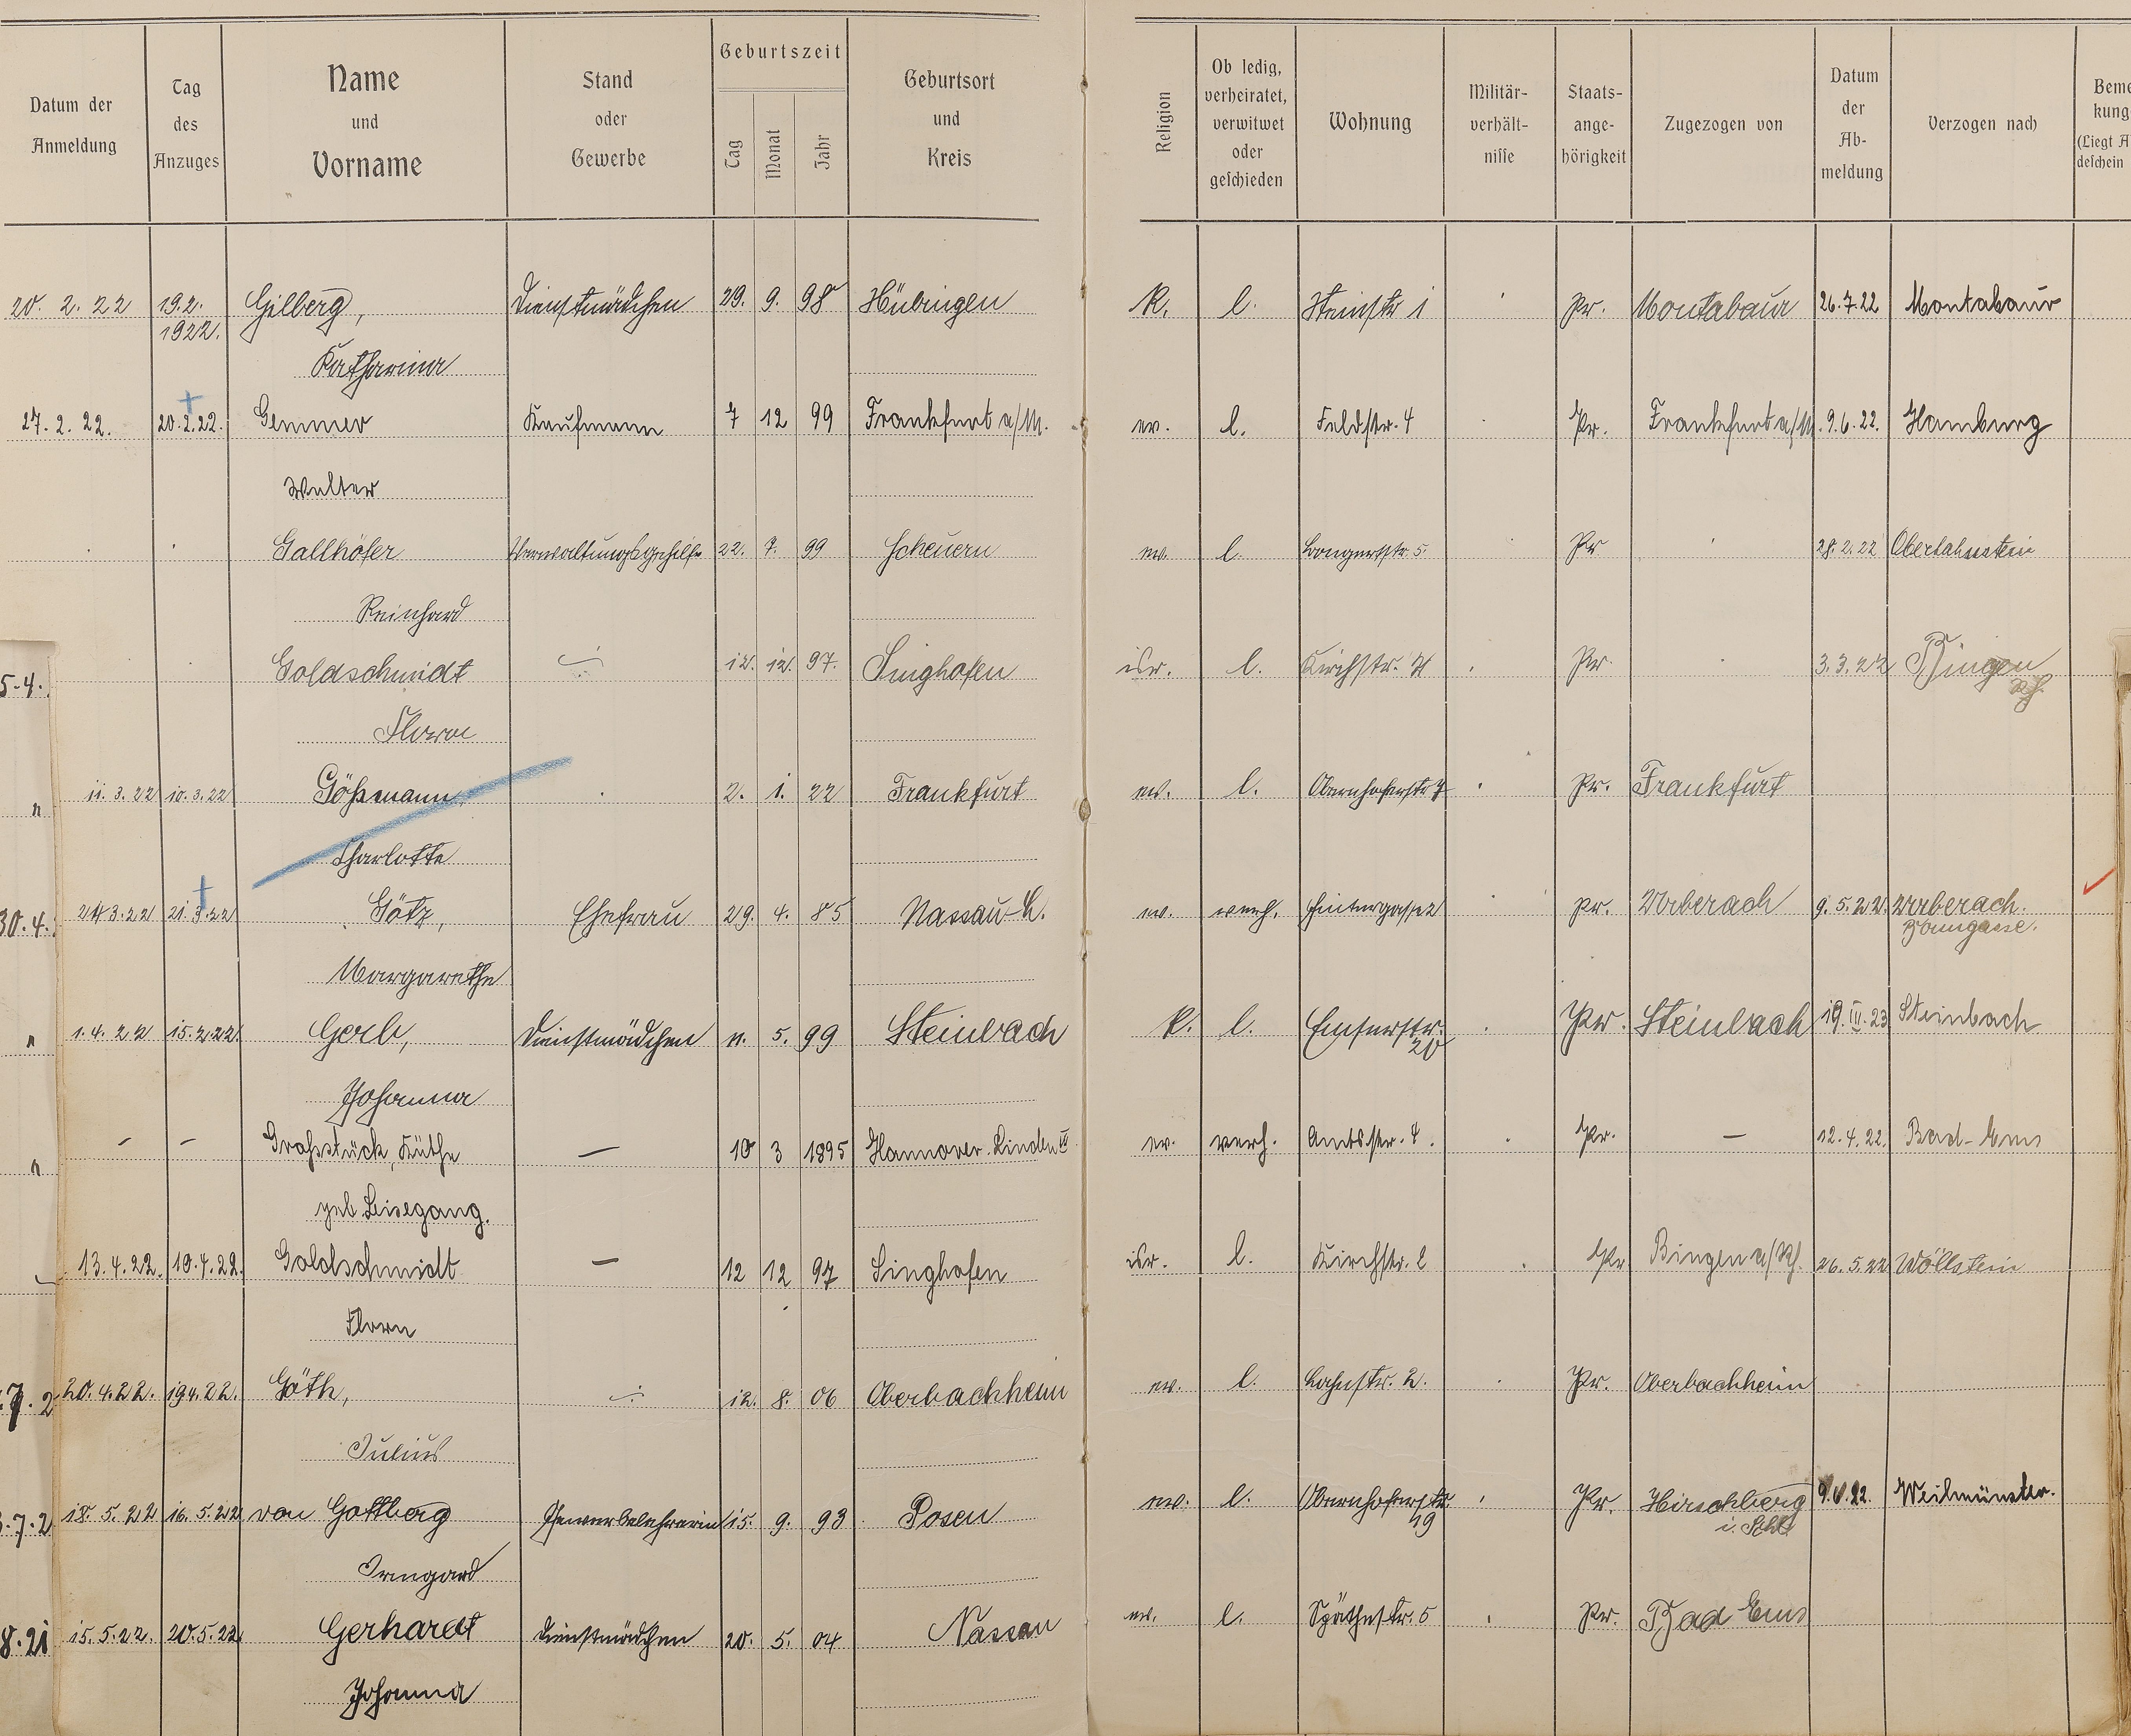 Datum der Anmeldung | Tag des Anzuges | Name und Vorname | Stand oder Gewerbe | Geburtszeit Tag Monat Jahr | Geburtsort und Kreis | Religion | Ob ledig, verheiratet, verwitwet oder geschieden | Wohnung | Militär-verhält-nisse | Staats-ange-hörigkeit | Zugezogen von | Datum der Ab-meldung | Verzogen nach | Beme kung (Liegt A deschein
20. 2. 22 19.2. 1922. Gilberg, Dienstmädchen 29. 9. 98 Hübingen K. l. Steinstr 1 Pr. Montabaur 26.7.22 Montabaur
Katharina
27. 2. 22. 20.2.22. Gemmer Kaufmann 7 12 99 Frankfurt a/M. ev. l. Feldstr. 4 Pr. Frankfurt a/M. 9.6.22. Hamburg
Walter
Gallhöfer Verwaltungsgehilfe 22. 7. 99 Scheuern ev. l. Bongertstr. 5. Pr 28.2.22 Oberlahnstein
Reinhard
5.4. Goldschmidt 12. 12. 97. Singhofen isr. l. Kirchstr. 2 Pr. 3.3.22 Bingen Rh.
Florn
11. 3. 22 10.3.22 Gößmann 2. 1. 22 Frankfurt ev. l. Obernhoferstr 7 Pr. Frankfurt
Charlotte
30.4. 24 3.22 21.3.22 Götz, Ehefrau 29. 4. 85 Nassau ev. verh. Hintergasse 2 Pr. 9.5.22.
Margarethe
1.4.22 15.2.22. Gerb, Dienstmädchen 11. 5. 99 Steinbach K. l. Emserstr. 20 Pr. Steinbach 19.III.23 Steinbach
Johanna
— — Großstück, Käthe — 10 3 1895 Hannover-Linden ev. verh. Amtsstr. 4. Pr. — 12.4.22. Bad-Ems
geb. Leisegang.
13.4.22. 10.4.22. Goldschmidt — 12 12 97 Singhofen isr. l. Kirchstr. 2 Pr Bingen a/Rh. 26.5.22 Wöllstein
Florn
20.4.22. 19.4.22. Göth, 12. 8. 06 Oberbachheim ev. l. Lahnstr. 2. Pr. Oberbachheim
Julius
18. 5. 22 16. 5. 22 von Gottberg Gewerbelehrerin 15. 9. 93 Posen ev. l. Obernhoferstr. 19 Pr. Hirschberg i. Schl. Weilmünster.
Irmgard
15.5.22. 20.5.22 Gerhardt Dienstmädchen 20. 5. 04 Nassau ev. l. Späthestr. 5 Pr. Bad Ems
Johanna